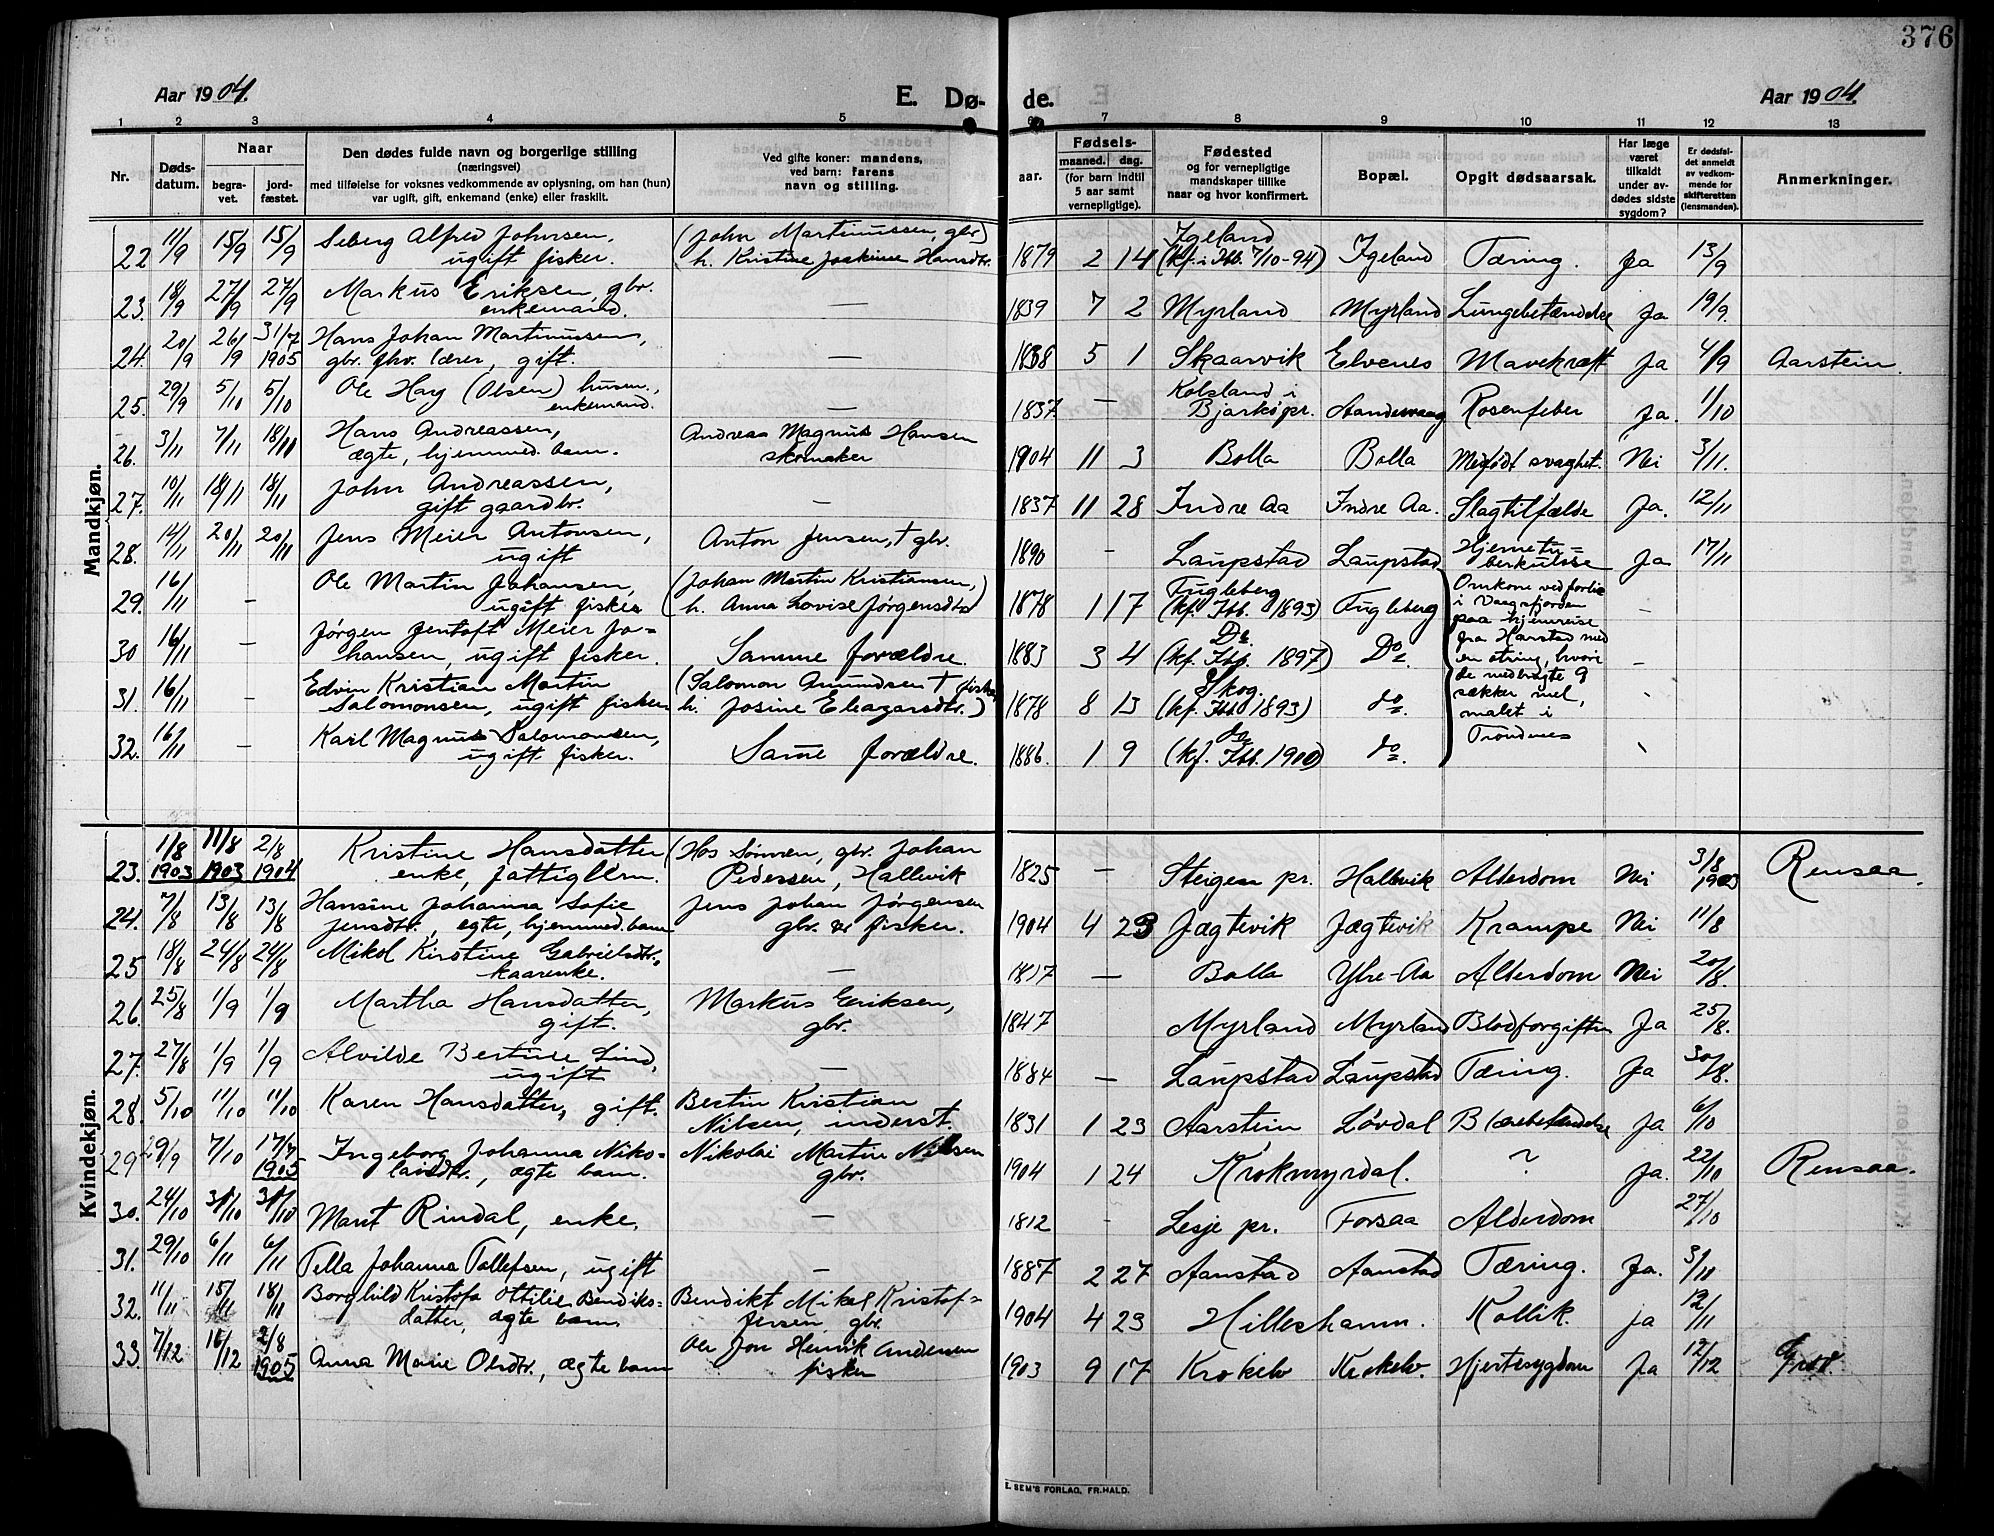 376
Aar 1904. E. Dø- de. Aar 1904.
1 2 3 4 5 6 7 8 9 10 11 12 13
Nr. Døds-datum. Naar begra-vet. jord-fæstet. Den dødes fulde navn og borgerlige stilling (næringsvei) med tilføielse for voksnes vedkommende av oplysning, om han (hun) var ugift, gift, enkemand (enke) eller fraskilt. Ved gifte koner: mandens, ved barn: farens navn og stilling. aar. Fødsels- maaned. dag. (for barn indtil 5 aar samt vernepligtige). Fødested og for vernepligtige mandskaper tillike naar og hvor konfirmert. Bopæl. Opgit dødsaarsak. Har læge været tilkaldt under av-dødes sidste sygdom? Er dødsfal-det anmeldt av vedkom-mende for skifteretten (lensmanden). Anmerkninger.
Mandkjøn.
22 11/9 15/9 15/9 Seberg Alfred Johnsen, ugift fisker. (John Martinussen, gbr) h. Kristine Joakime Hansdtr. 1879 2 14 Igeland (kf. i Ibb. 7/10-94) Igeland Tæring. Ja 13/9
23. 18/9 27/9 27/9 Markus Eriksen, gbr. enkemand. — 1839 7 2 Myrland Myrland Lungebetændelse Ja 19/9.
24. 20/9 26/9 31/7 1905 Hans Johan Martinussen, gbr. fhv. lærer, gift. — 1838 5 1 Skaarvik Elvenes Mavekræft Ja 4/9 Aarstein.
25. 29/9 5/10 5/10 Ole Hay (Olsen) husm., enkemand. — 1837. — Kolsland i Bjarkø pr. Rosenfeber Ja. 1/10
26. 3/11 7/11 18/11 Hans Andreassen, ægte, hjemmed. barn. Andreas Magnus Hansen skomaker 1904 11 3 Bolla Bolla Medfødt svaghet. Nei 3/11.
27. 10/11 18/11 18/11 John Andreassen, gift gaardbr. — 1837 11 28 Indre Aa Indre Aa. Slagtilfælde Ja. 12/11
28. 14/11 20/11 20/11 Jens Meier Antonsen, ugift Anton Jensen, † gbr. 1890 - Laupstad Laupstad Hjernetu=berkulose Ja 17/11
29. 16/11 - Ole Martin Johansen, ugift fisker (Johan Martin Kristiansen,) h. Anna Lovise Jørgensdtr 1878 1 17 Fugleberg (kf. Ibb. 1893) Fugleberg Omkom ved forlis i Vaagsfjorden paa hjemreise fra Harstad med en otring, hvori de medbragte 9 sækker mel, malet i Trondenes -
30 16/11 - Jørgen Jentoft Meier Jo=hansen, ugift fisker. Samme forældre. 1883 3 4 Do. (kf. Ibb. 1897) Do. -
31. 16/11 Edvin Kristian Martin Salomonsen, ugift fisker (Salomon Amundsen † fisker h. Josine Eleazarsdtr.) 1878 8 13 Skog. (kf. Ibb 1893) do.
32. 16/11 - Karl Magnus Salomonsen, ugift fisker. Same forældre. 1886. 1 9 do (kf. Ibb. 1900) do.
Kvindekjøn.
23. 1/8 1903 11/8 1903 2/8 1904 Kristine Hansdatter enke, fattiglem. (Hos Sønnen, gbr. Johan Pedersen, Hallevik 1825 — Steigen pr. Hallevik Alderdom Nei 3/8 1903 Rensaa.
24. 7/8 13/8 13/8 Hansine Johanna Sofie Jensdtr., ægte, hjemmed. barn Jens Johan Jørgensen gbr. & fisker. 1904 4 23 Jægtevik Jægtevik Krampe Nei 11/8
25 18/8 24/8 24/8 Mikol Kirstine Gabrielsdtr. kaarenke. — Bolla Ytre-Aa Alderdom Nei 20/8.
26. 25/8 1/9 1/9 Martha Hansdatter, gift. Markus Eriksen, gbr. 1847 Myrland Myrland Blodforgiftn Ja 25/8.
27. 27/8 1/9 1/9 Alvilde Bertine Lind, ugift — 1884 — Laupstad Laupstad Tæring. Ja 30/8.
28. 5/10 11/10 11/10 Karen Hansdatter, gift. Bertin Kristian Nilsen, inderst. 1831 1 23 Aarstein Løvdal Blærebetændelse Ja 6/10
29 29/9 7/10 17/7 1905 Ingeborg Johanna Niko=laisdtr., ægte barn. Nikolai Martin Nilsen gbr. 1904 1 24 Krokmyrdal. ? Ja. 22/10 Rensaa.
30. 24/10 31/10 31/10 Marit Rindal, enke, — 1812 - Lesje pr. Forsaa Alderdom 27/10
31. 29/10 6/11 6/11 Tella Johanna Tollefsen, ugift — 1887 2 27 Aanstad Aanstad Tæring. Ja. 3/11
32. 11/11 15/11 18/11 Borghild Kristofa Ottilie Bendiks=datter, ægte barn Bendikt Mikal Kristof=fersen, gbr. 1904 4 23 Hilleshamn. Kollik. ja 12/11
33. 7/12 16/12 2/8 1905 Anna Marie Olsdtr., ægte barn Ole Jon Henrik Andersen fisker 1903 9 17 Krokelv Krokelv. Hjertesygdom Ja 12/12 Grov.
E. SEM'S FORLAG, FR.HALD.